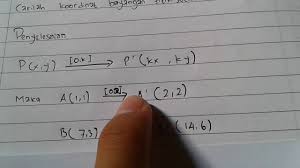 (carilah koordinat bayangan
Penyelesaian
P(x,y) [O,k]→ P'(kx, ky)
Maka A(1,1) → A'(2,2)
B(7,3) (14,6)